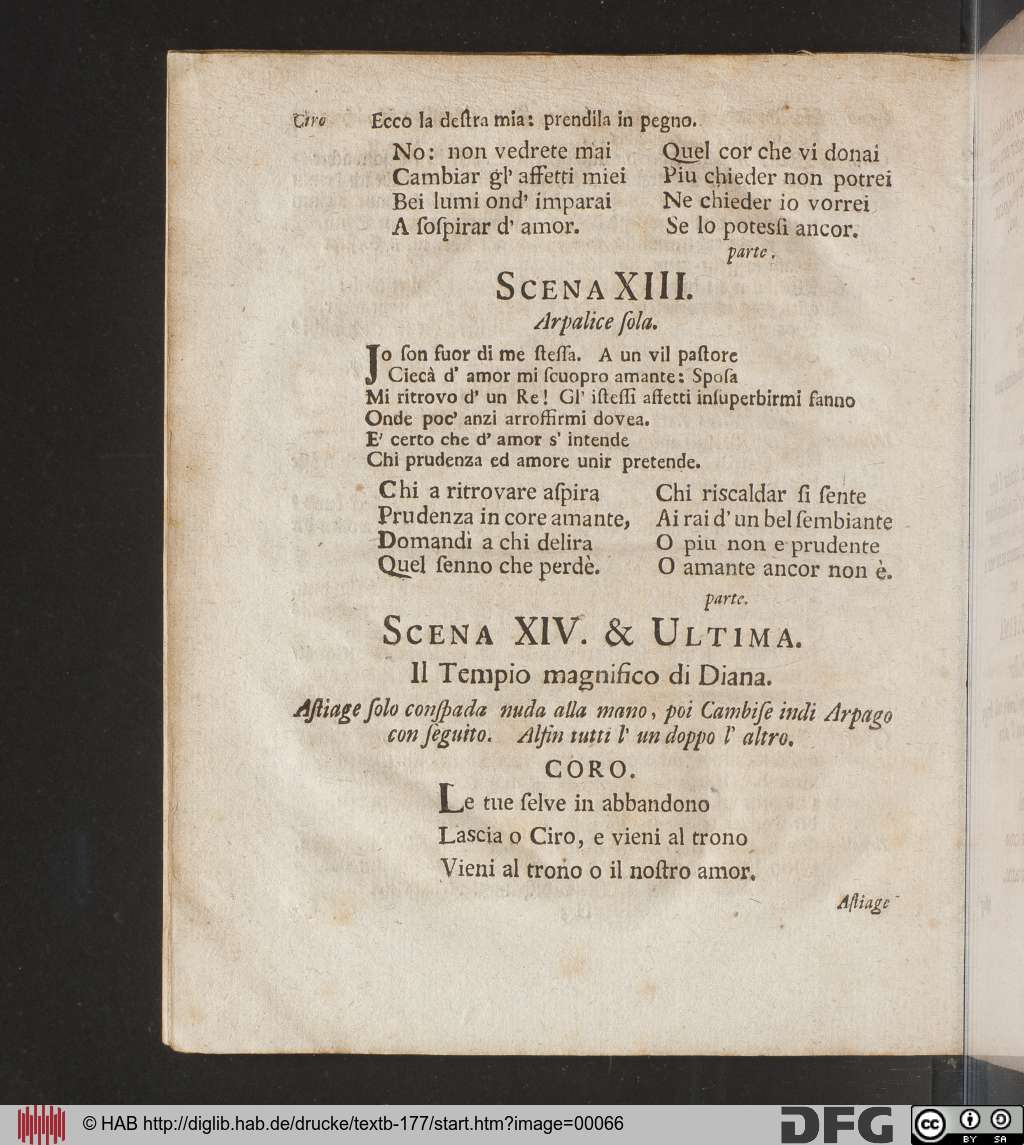 Ciro Ecco la deſtra mia: prendila in pegno.
No: non vedrete mai
Cambiar gl' affetti miei
Bei lumi ond' imparai
A ſoſpirar d' amor.
Quel cor che vi donai
Piu chieder non potrei
Ne chieder io vorrei
Se lo potesſi ancor.
parte.
SCENA XIII.
Arpalice ſola.
Jo ſon fuor di me ſteſſa. A un vil paſtore
Ciecà d' amor mi ſcuopro amante: Spoſa
Mi ritrovo d' un Re! Gl' iſteſſi affetti inſuperbirmi fanno
Onde poc' anzi arroſſirmi dovea.
E' certo che d' amor s' intende
Chi prudenza ed amore unir pretende.
Chi a ritrovare aſpira
Prudenza in core amante,
Domandi a chi delira
Quel ſenno che perdè.
Chi riscaldar ſi ſente
Ai rai d' un bel ſembiante
O piu non e prudente
O amante ancor non è.
parte.
SCENA XIV. & ULTIMA.
Il Tempio magnifico di Diana.
Aſtiage ſolo conſpada nuda alla mano, poi Cambiſe indi Arpago
con ſeguito. Alfin tutti l' un doppo l' altro.
CORO.
Le tue ſelve in abbandono
Lascia o Ciro, e vieni al trono
Vieni al trono o il noſtro amor.
Aſtiage
© HAB http://diglib.hab.de/drucke/textb-177/start.htm?image=00066
DFG
cc BY SA